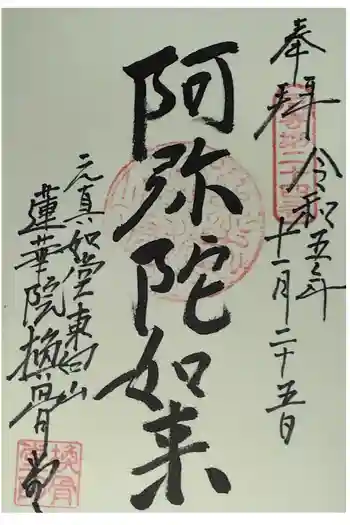 奉拝
令和五年
十一月二十五日
阿弥陀如来
元真如堂東向山
蓮華院換骨堂
換骨
堂印